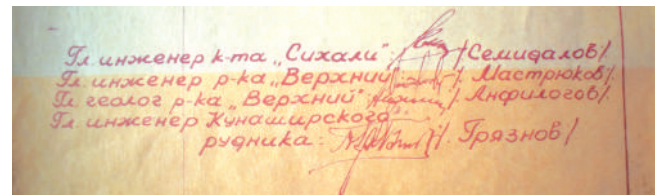 Гл. инженер к-та „Сихали" /Семидалов/.
Гл. инженер р-ка „Верхний" /. Мастрюков/.
Гл. геолог р-ка „Верхний" /. Анфилогов/.
Гл. инженер Кунаширского
рудника: /. Грязнов/